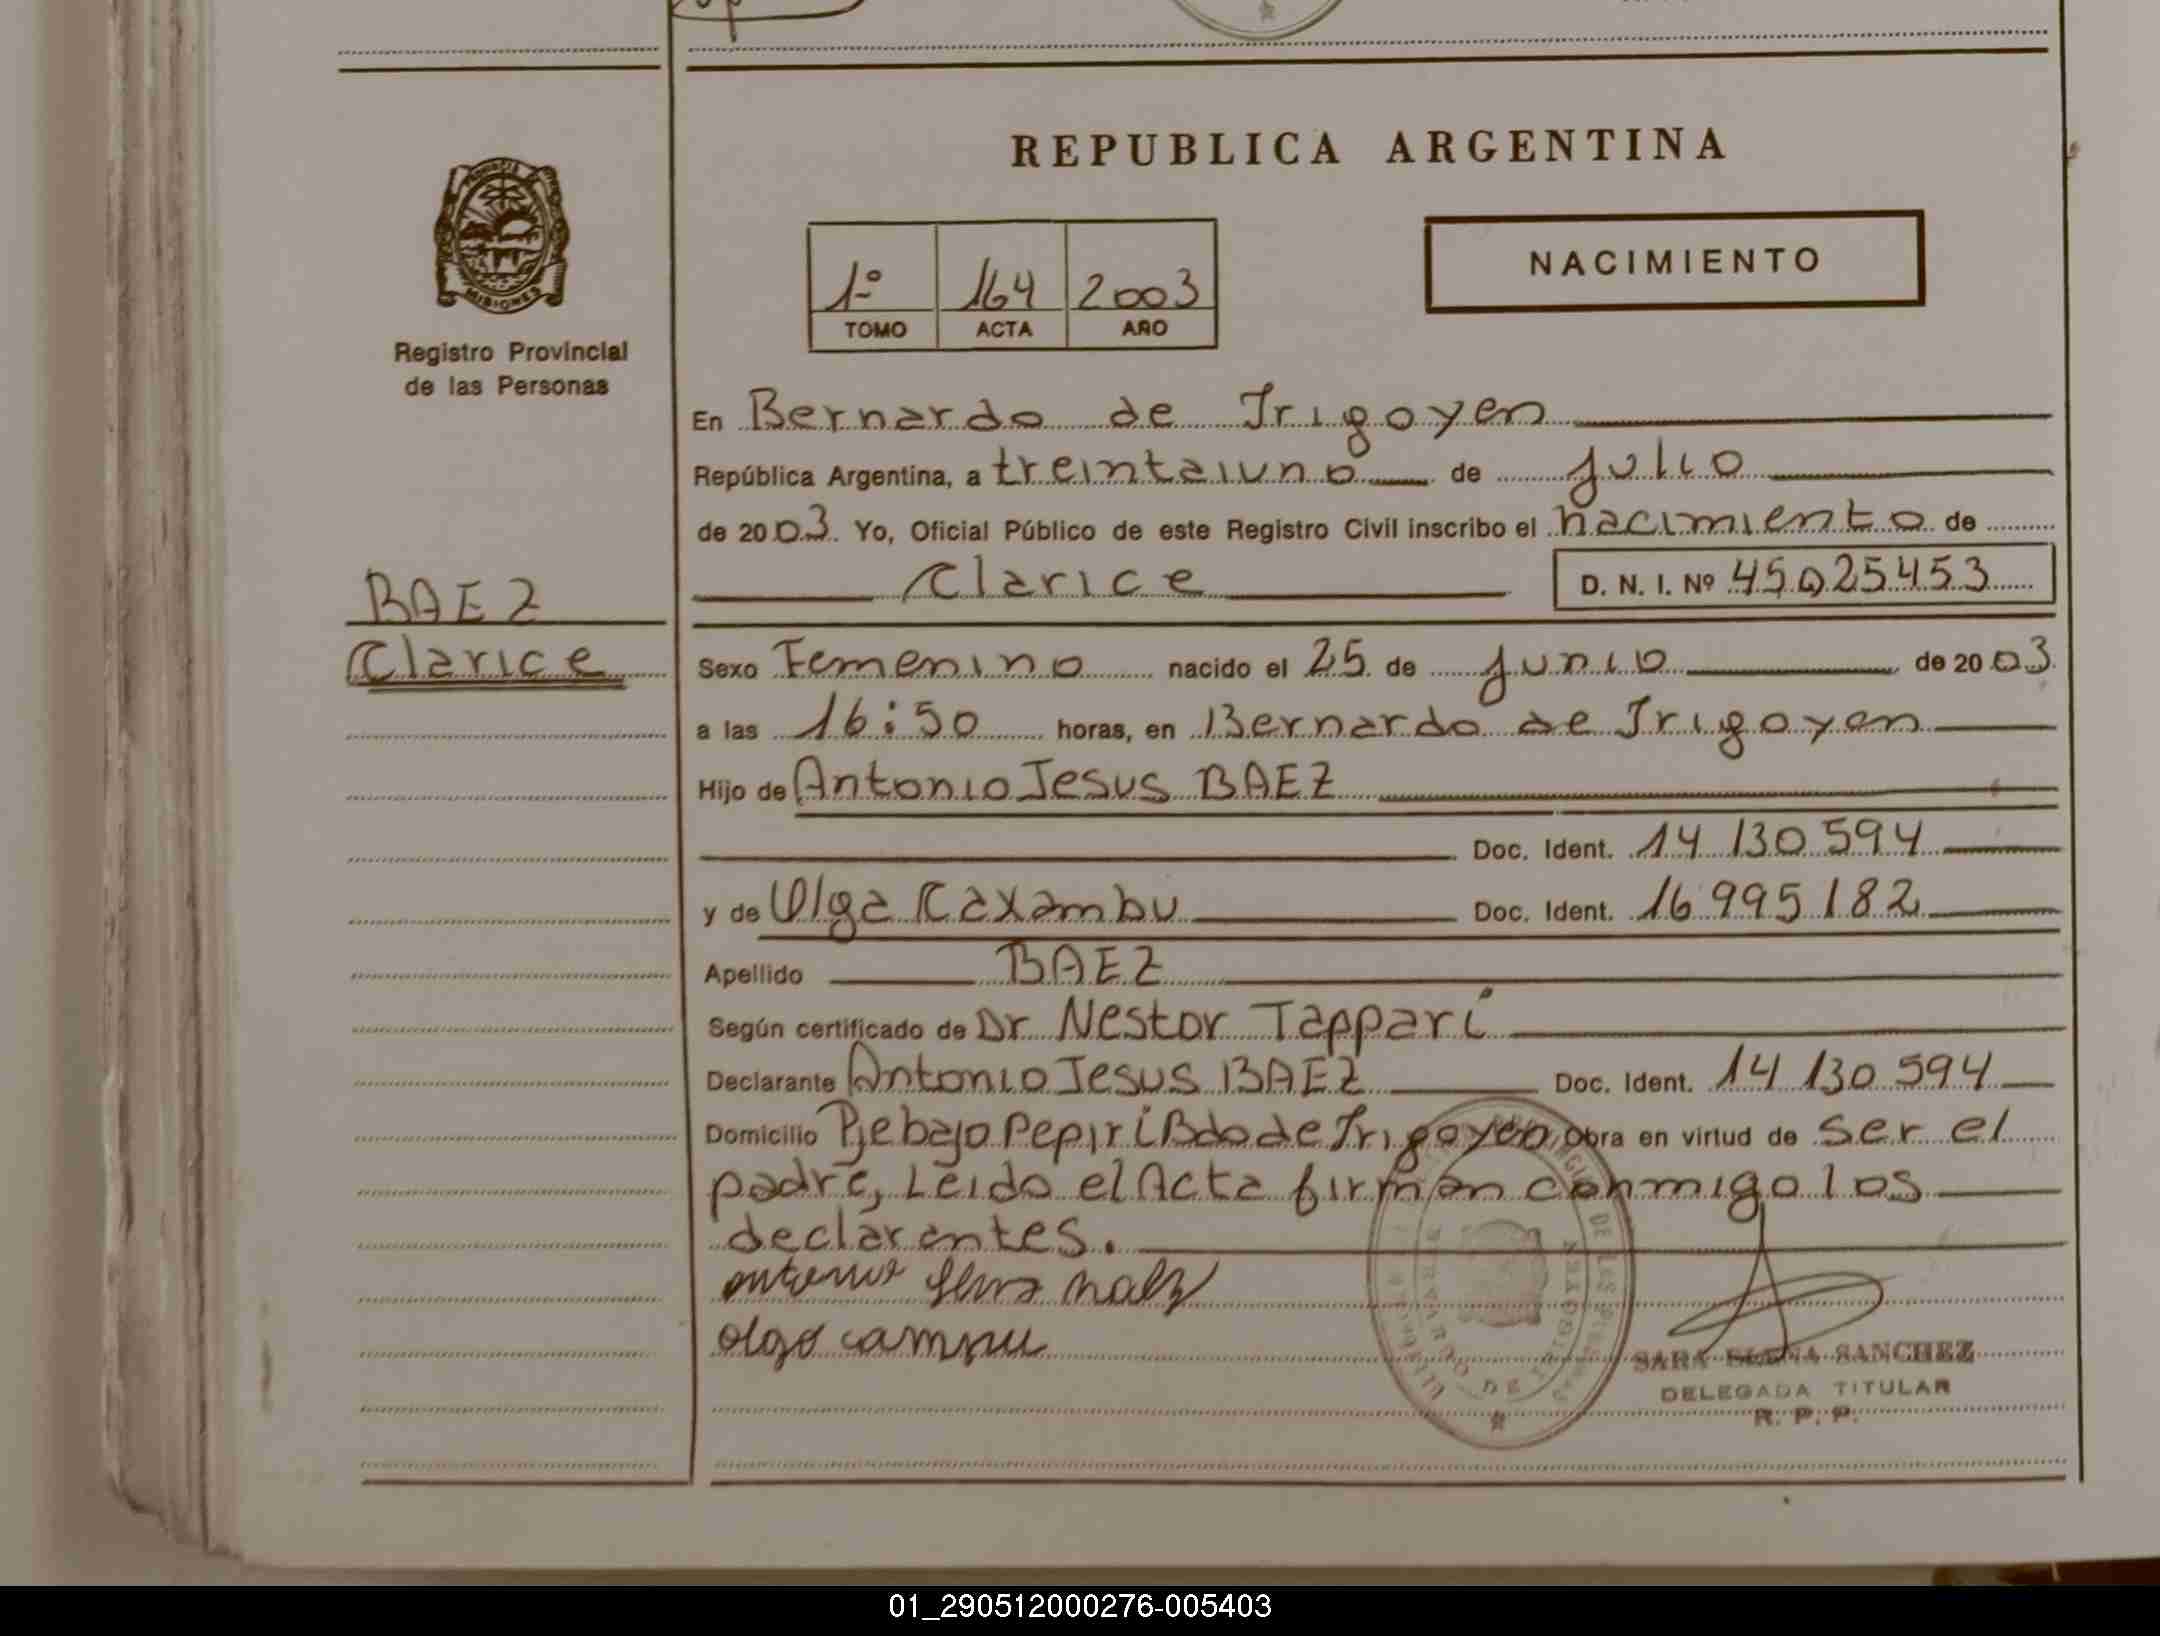 REPUBLICA ARGENTINA
PROVINCIA DE
MISIONES
Registro Provincial
de las Personas
1º 164 2003
TOMO ACTA AÑO
NACIMIENTO
En Bernardo de Irigoyen
República Argentina, a treintaiuno de julio
de 2003. Yo, Oficial Público de este Registro Civil inscribo el nacimiento de
Clarice D. N. I. Nº 45025453
BAEZ
Clarice
Sexo Femenino nacido el 25 de junio de 2003
a las 16:50 horas, en Bernardo de Irigoyen
Hijo de Antonio Jesus BAEZ
Doc. Ident. 14 130 594
y de Olga Caxambu Doc. Ident. 16 995 182
Apellido BAEZ
Según certificado de Dr Nestor Tappari
Declarante Antonio Jesus BAEZ Doc. Ident. 14 130 594
Domicilio Pje bajo Pepiri Bdo de Irigoyen Obra en virtud de ser el
padre, Leido el Acta firman conmigo los
declarantes.
SARA ELENA SANCHEZ
DELEGADA TITULAR
R. P. P.
01_290512000276-005403